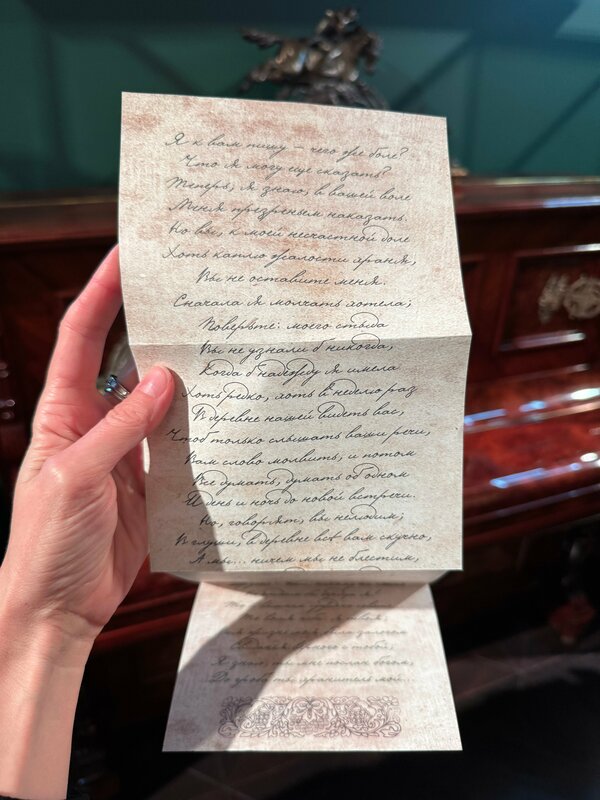 Я к вам пишу – чего же боле?
Что я могу еще сказать?
Теперь, я знаю, в вашей воле
Меня презреньем наказать.
Но вы, к моей несчастной доле
Хоть каплю жалости храня,
Вы не оставите меня.
Сначала я молчать хотела;
Поверьте: моего стыда
Вы не узнали б никогда,
Когда б надежду я имела
Хоть редко, хоть в неделю раз
В деревне нашей видеть вас,
Чтоб только слышать ваши речи,
Вам слово молвить, и потом
Все думать, думать об одном
И день и ночь до новой встречи.
Но, говорят, вы нелюдим;
В глуши, в деревне всё вам скучно,
А мы... ничем мы не блестим,
Я знаю, ты мне послан богом,
До гроба ты хранитель мой...